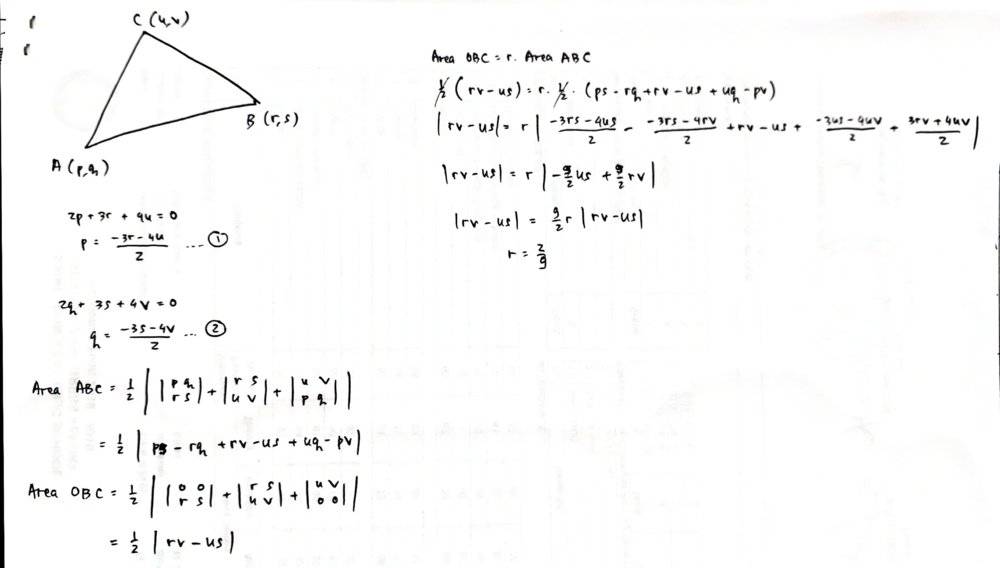 C (u,v)
B (r,s)
A (p,q)
2p + 3r + 4u = 0
p = \frac{-3r-4u}{2} .... ①
2q + 3s + 4v = 0
q = \frac{-3s-4v}{2} ... ②
Area ABC = \frac{1}{2} | |p q; r s| + |r s; u v| + |u v; p q| |
= \frac{1}{2} | ps - rq + rv - us + uq - pv |
Area OBC = \frac{1}{2} | |0 0; r s| + |r s; u v| + |u v; 0 0| |
= \frac{1}{2} | rv - us |
Area OBC = r. Area ABC
\frac{1}{2} (rv - us) = r. \frac{1}{2}. (ps - rq + rv - us + uq - pv)
|rv - us| = r | \frac{-3rs-4us}{2} - \frac{-3rs-4rv}{2} + rv - us + \frac{-3us-4uv}{2} + \frac{3rv+4uv}{2} |
|rv - us| = r | -\frac{9}{2}us + \frac{9}{2}rv |
|rv - us| = \frac{9}{2}r |rv - us|
r = \frac{2}{9}